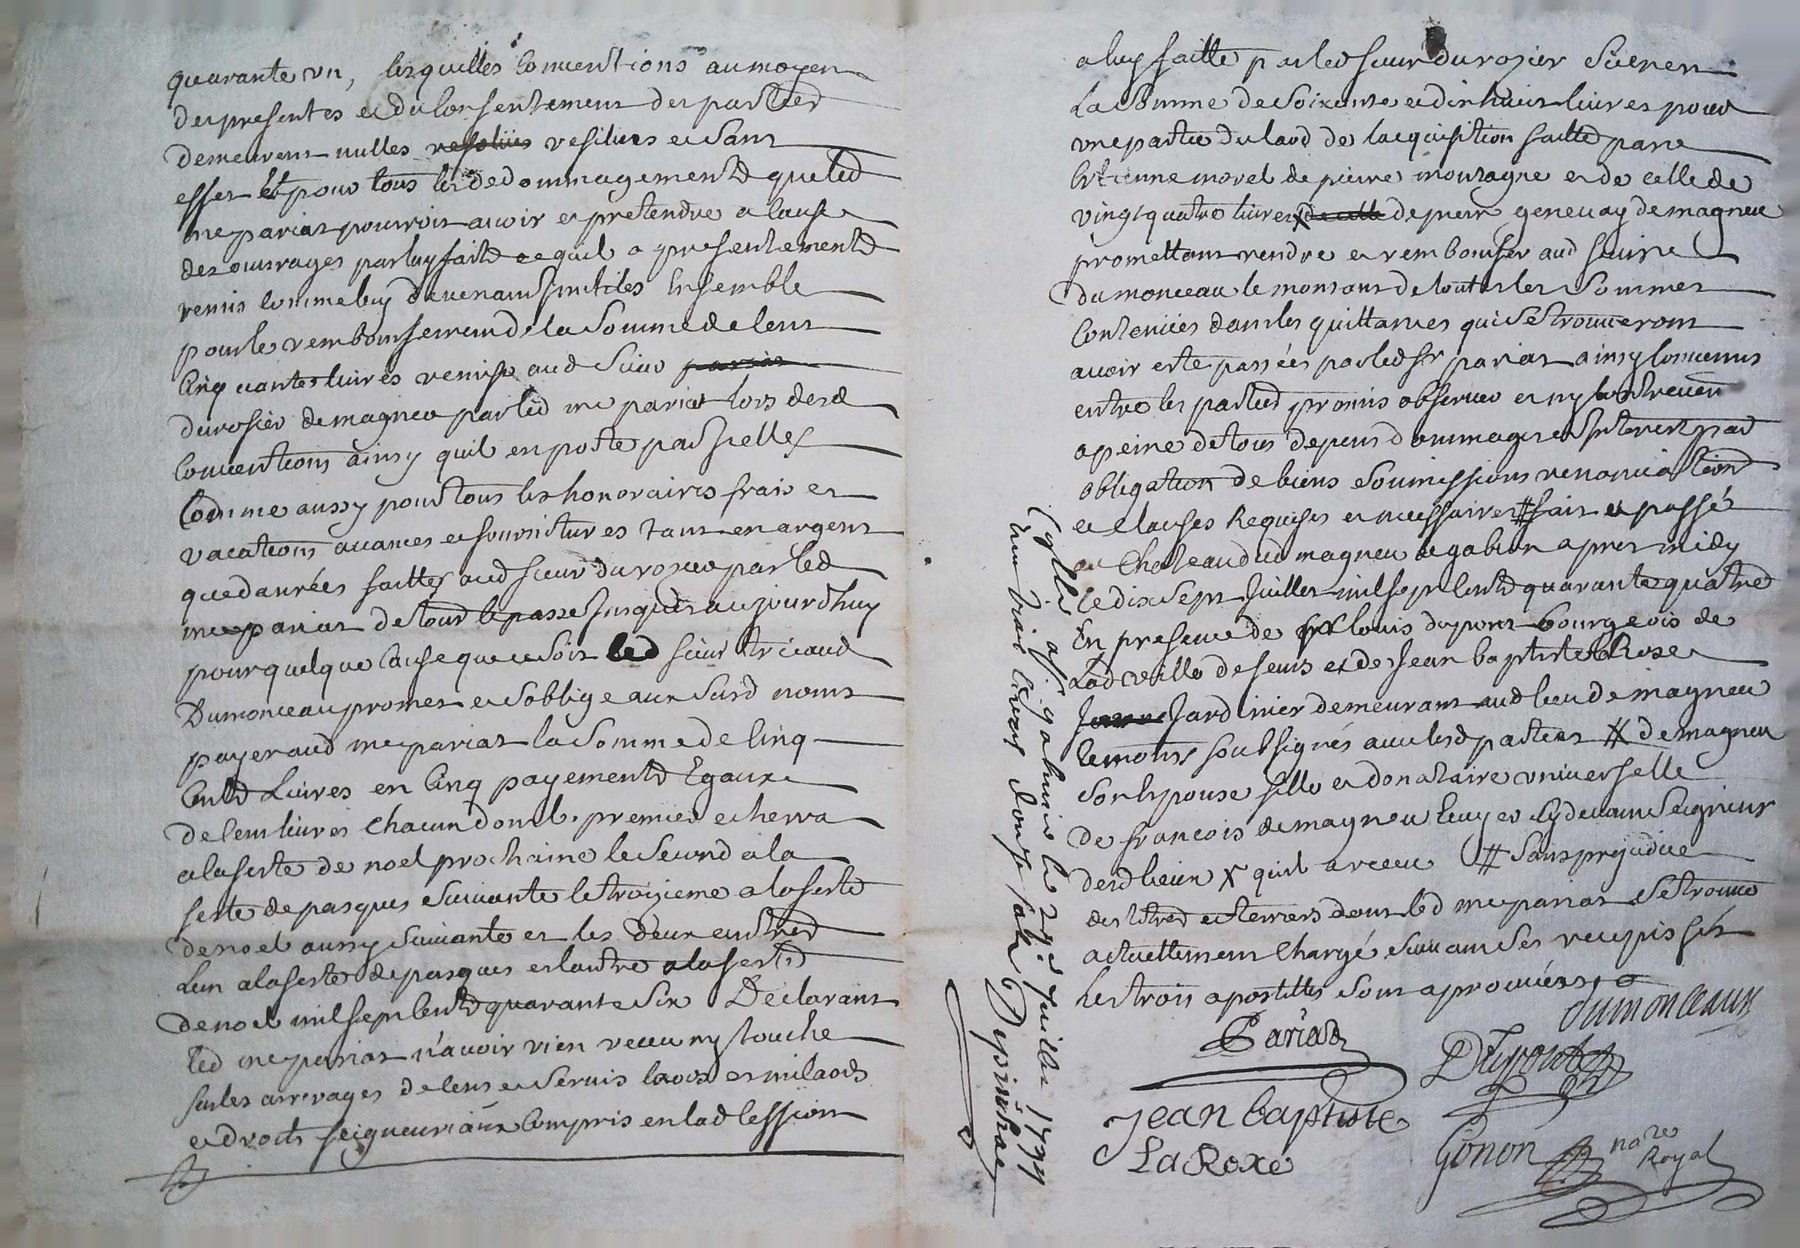 quarante un, lesquelles conventions au moyen
des presentes et du consentement des parties
demeurent nulles resoliües resiliees et sans
effet et pour tous les dedommagements que led
me pariat pourroit avoir et pretendre a cause
des ouvrages par luy faits et quil a presentement
remis comme luy devenant inutiles Ensemble
pour le remboursement de la somme de cent
cinquantes livres remise aud sieur pariat
durosier de magneu par led me pariat lors desd
conventions ainsy quil en poste par icelles
Comme aussy pour tous les honoraires frais et
vacations avances et fournitures tant en argent
que danrées faittes aud sieur durosier par led
me pariat de tout le passé jusques aujourdhuy
pour quelque cause que ce soit led sieur
Dumonceau promet et soblige aux susd noms
payer aud me pariat la somme de cinq
cents livres en cinq payements Egaux
de cent livres chacun dont le premier echerra
a la feste de noel prochaine le second a la
feste de pasques suivante le troizieme a la feste
de noel aussy suivante et les deux autres
lun a la feste de pasques et lautre a la feste
de noel mil sept cents quarante six Declarant
led me pariat n'avoir rien receu ny touché
sur les arrerages de cens et servis laods et milaods
et droits seigneuriaux compris en lad cession
a luy faitte par led sieur durozier si en en
la somme de soixante et dix huit livres pour
une partie du laod de lacquisition faitte par
Estienne morel de pierre montagne et de celle de
vingt quatre livres X de celle de pierre genevay de magneu
promettant rendre et rembourser aud sieur
dumonceau le montant de toutes les sommes
contenües dans les quittances qui se trouveront
avoir esté passées par led sr pariat ainsy convenus
entre les parties promis observer et ny contrevenir
a peine de tous depens dommages et interest par
obligation de biens soumissions renonciations
et clauses Requises et necessaires # fait et passé
au Chateau dud magneu le gabion apres midy
le dix sept juillet mil sept cents quarante quatre
En presence de sr louis dupont bourgeois de
Lad ville de feurs et de jean baptiste la Roze
jardinier demeurant aud lieu de magneu
temoins soubsignés avec lesd parties # de magneu
son epouse fille et donataire universelle
de francois de magneu Ecuyer cy devant Seigneur
desd lieux X quil a receu # sans prejudice
des titres et terriers dont led me pariat se trouve
actuellement chargé suivant ses recepissés
les trois apostilles sont aprouvées
dumonceau
Pariat
Dupont
jean baptiste
La Roxe
Gonon nore
Royal
le 29e juillet 1744